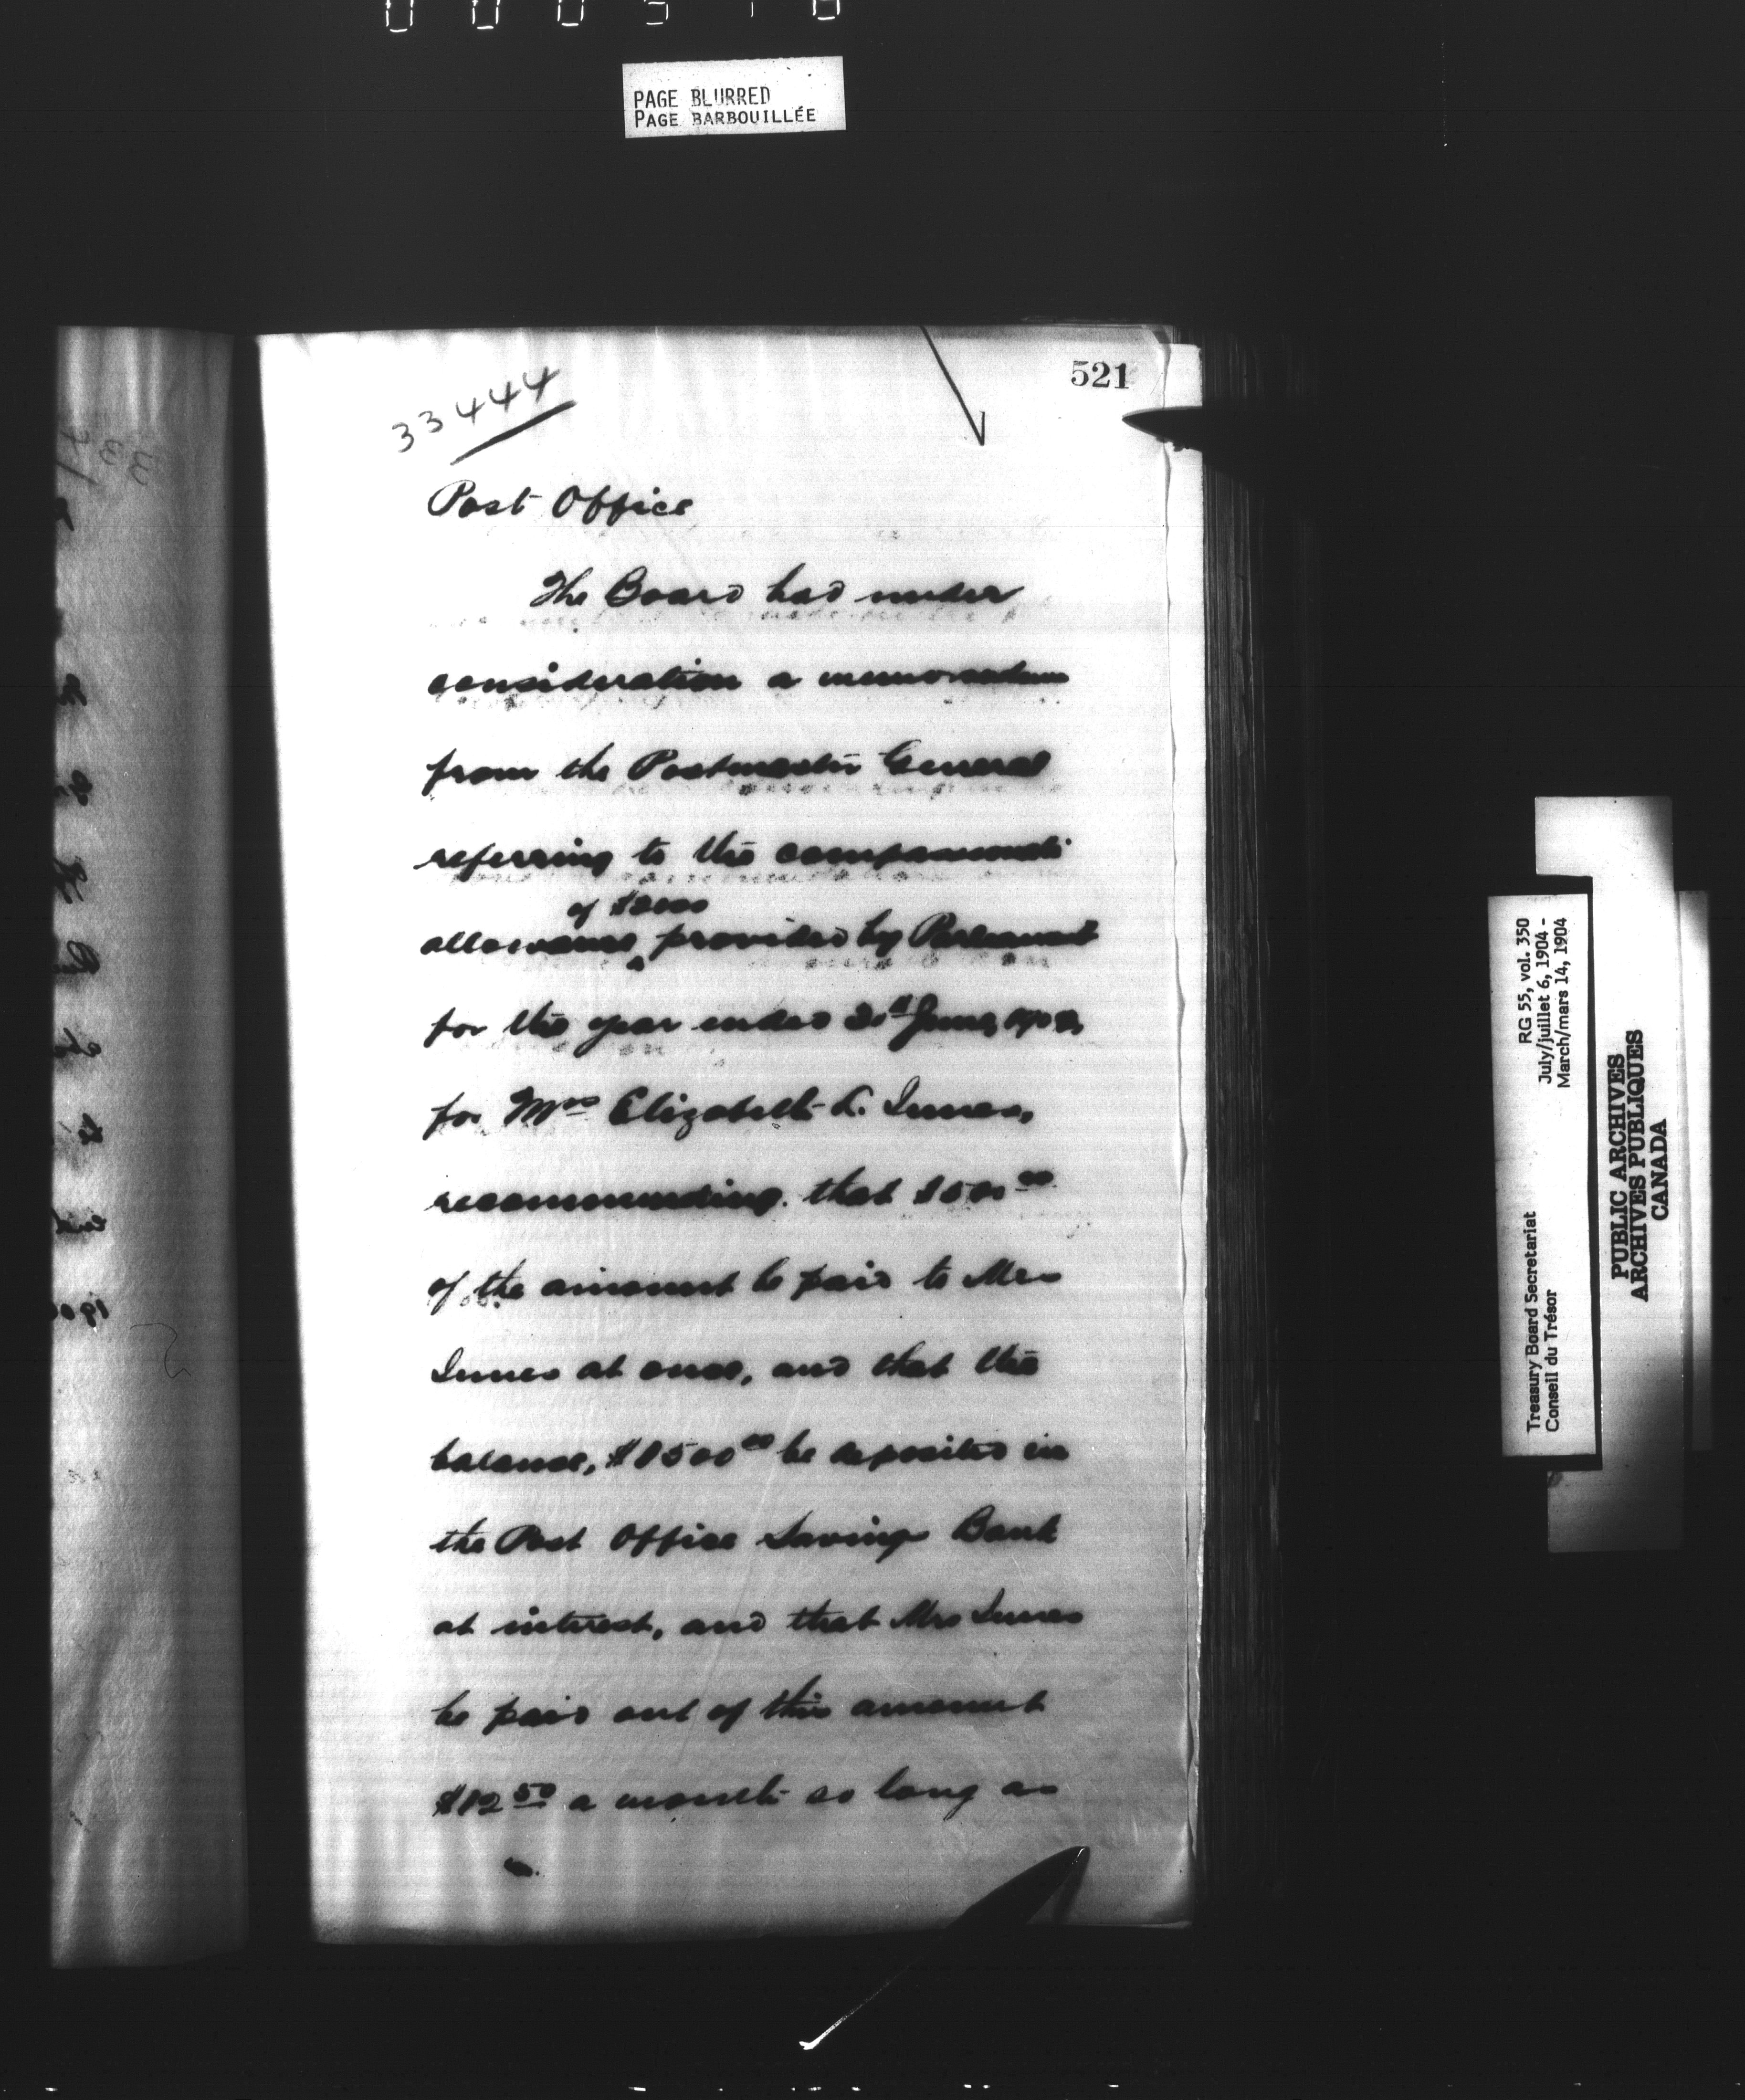 PAGE BLURRED
PAGE BARBOUILLÉE
521
33444
Post Office
The Board had under
consideration a memorandum
from the Postmaster General
referring to the compassionate
of $2000
allowance ‸ provided by Parliament
for the year ended 30th June,
for Mrs Elizabeth L. Innes,
recommending that $500 00
of the amount be paid to Mrs
Innes at once, and that the
balance, $1500 00 be deposited in
the Post Office Savings Bank
at interest, and that Mrs Innes
be paid out of this amount
$12 50 a month so long as
RG 55, vol. 350
July/juillet 6, 1904 -
March/mars 14, 1904
Treasury Board Secretariat
Conseil du Trésor
PUBLIC ARCHIVES
ARCHIVES PUBLIQUES
CANADA